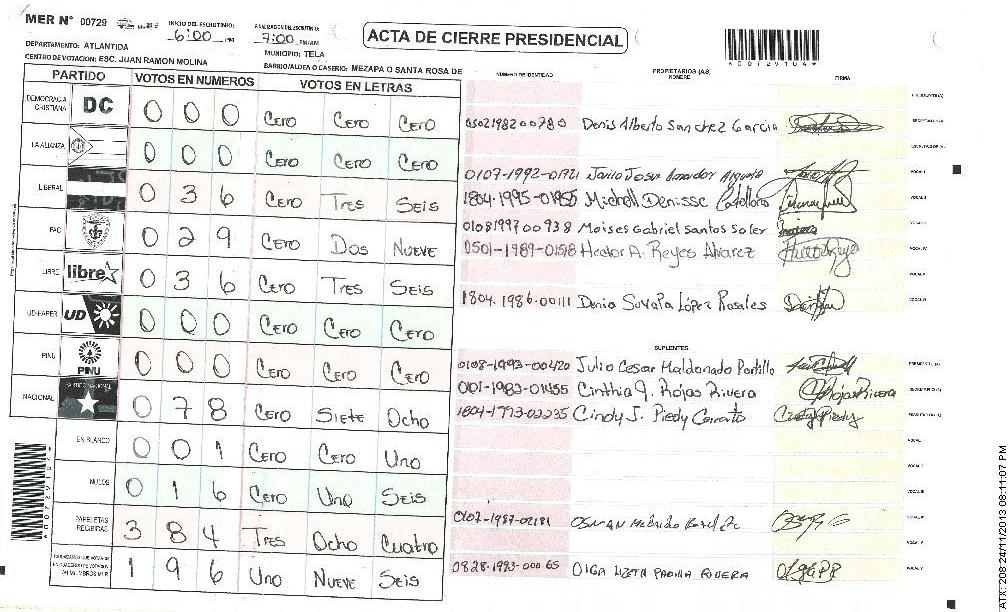 MER N° 00729
INICIO DEL ESCRUTINIO: 6:00 PM
FINALIZACION DEL ESCRUTINIO: 7:00 PM/AM
ACTA DE CIERRE PRESIDENCIAL
DEPARTAMENTO: ATLANTIDA
MUNICIPIO: TELA
CENTRO DE VOTACION: ESC. JUAN RAMON MOLINA
BARRIO/ALDEA O CASERIO: MEZAPA O SANTA ROSA DE
PARTIDO VOTOS EN NUMEROS VOTOS EN LETRAS
NUMERO DE IDENTIDAD PROPIETARIOS (AS) NOMBRE FIRMA
DEMOCRACIA CRISTIANA DC 0 0 0 Cero Cero Cero
LA ALIANZA 0 0 0 Cero Cero Cero
LIBERAL 0 3 6 Cero Tres Seis
PAC 0 2 9 Cero Dos Nueve
LIBRE libre 0 3 6 Cero Tres Seis
UD-FAPER UD 0 0 0 Cero Cero Cero
PINU PINU 0 0 0 Cero Cero Cero
NACIONAL PARTIDO NACIONAL 0 7 8 Cero Siete Ocho
EN BLANCO 0 0 1 Cero Cero Uno
NULOS 0 1 6 Cero Uno Seis
PAPELETAS RECIBIDAS 3 8 4 Tres Ocho Cuatro
1 9 6 Uno Nueve Seis
0502198200780 Denis Alberto Sanchez Garcia
0107-1992-01721
1804-1995-01955 Michell Denisse Castellano
0108199700938 Moises Gabriel Santos Soler
0501-1989-01518 Hector A. Reyes Alvarez
1804-1986-00111 Denia Suyapa López Rosales
SUPLENTES
0108-1993-00420 Julio Cesar Maldonado Portillo
0101-1983-01455 Cinthia J. Rojas Rivera
1804-1993-02235 Cindy J. Piedy Carrato
0107-1987-02181 OSMAN
0828-1993-00065 OLGA LIZETH PADILLA RIVERA
ATX: 208 24/11/2013 08:11:07 PM